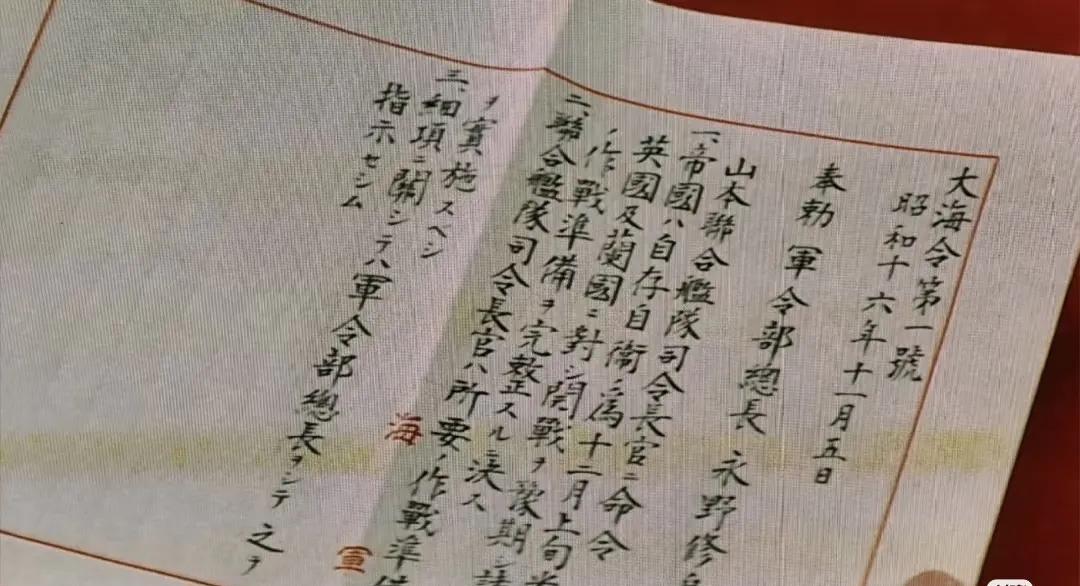 大海令第一號
昭和十六年十一月五日
奉勅 軍令部總長 永野修
山本聯合艦隊司令長官ニ命令
一、帝國ハ自存自衞ノ爲十二月上旬
英國及蘭國ニ對シ開戰ヲ豫期シ
ノ作戰準備ヲ完整スルニ決ス
二、聯合艦隊司令長官ハ所要ノ作戰準
ヲ實施スヘシ
三、細項ニ關シテハ軍令部總長ヲシテ之ヲ
指示セシム
海